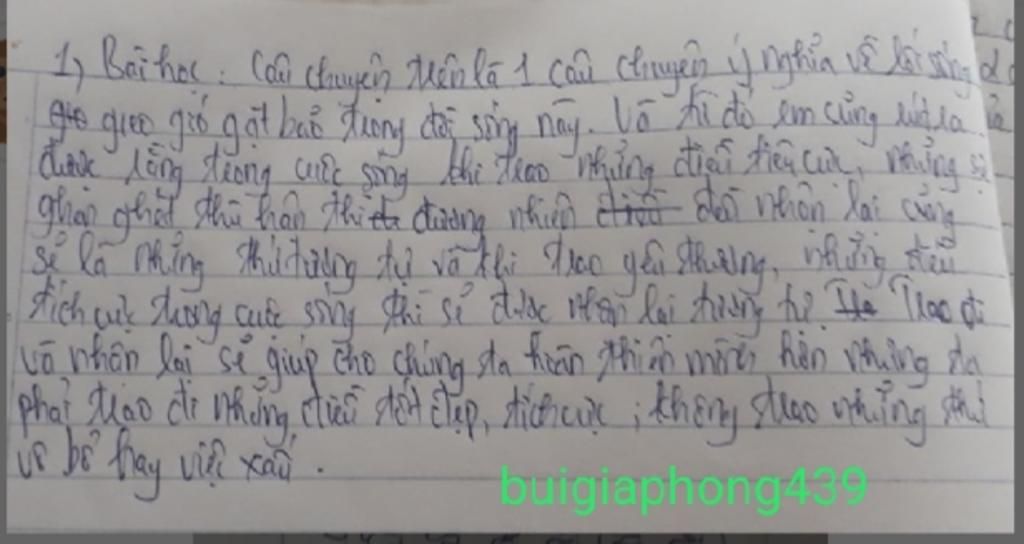 1, Bài học: Câu chuyện trên là 1 câu chuyện ý nghĩa về lối sống
gieo gió gặt bão trong đời sống này. Và từ đó em cũng rút ra
được rằng trong cuộc sống khi trao những điều tiêu cực, những sự
ghen ghét thù hận thì đương nhiên điều đều nhận lại cũng
sẽ là những thứ tương tự và khi trao yêu thương, những điều
tích cực trong cuộc sống thì sẽ được nhận lại tương tự Trao đi
và nhận lại sẽ giúp cho chúng ta hoàn thiện mình hơn nhưng ta
phải trao đi những điều tốt đẹp, tích cực; không trao những thứ
vô bổ hay việc xấu.
buigiaphong439